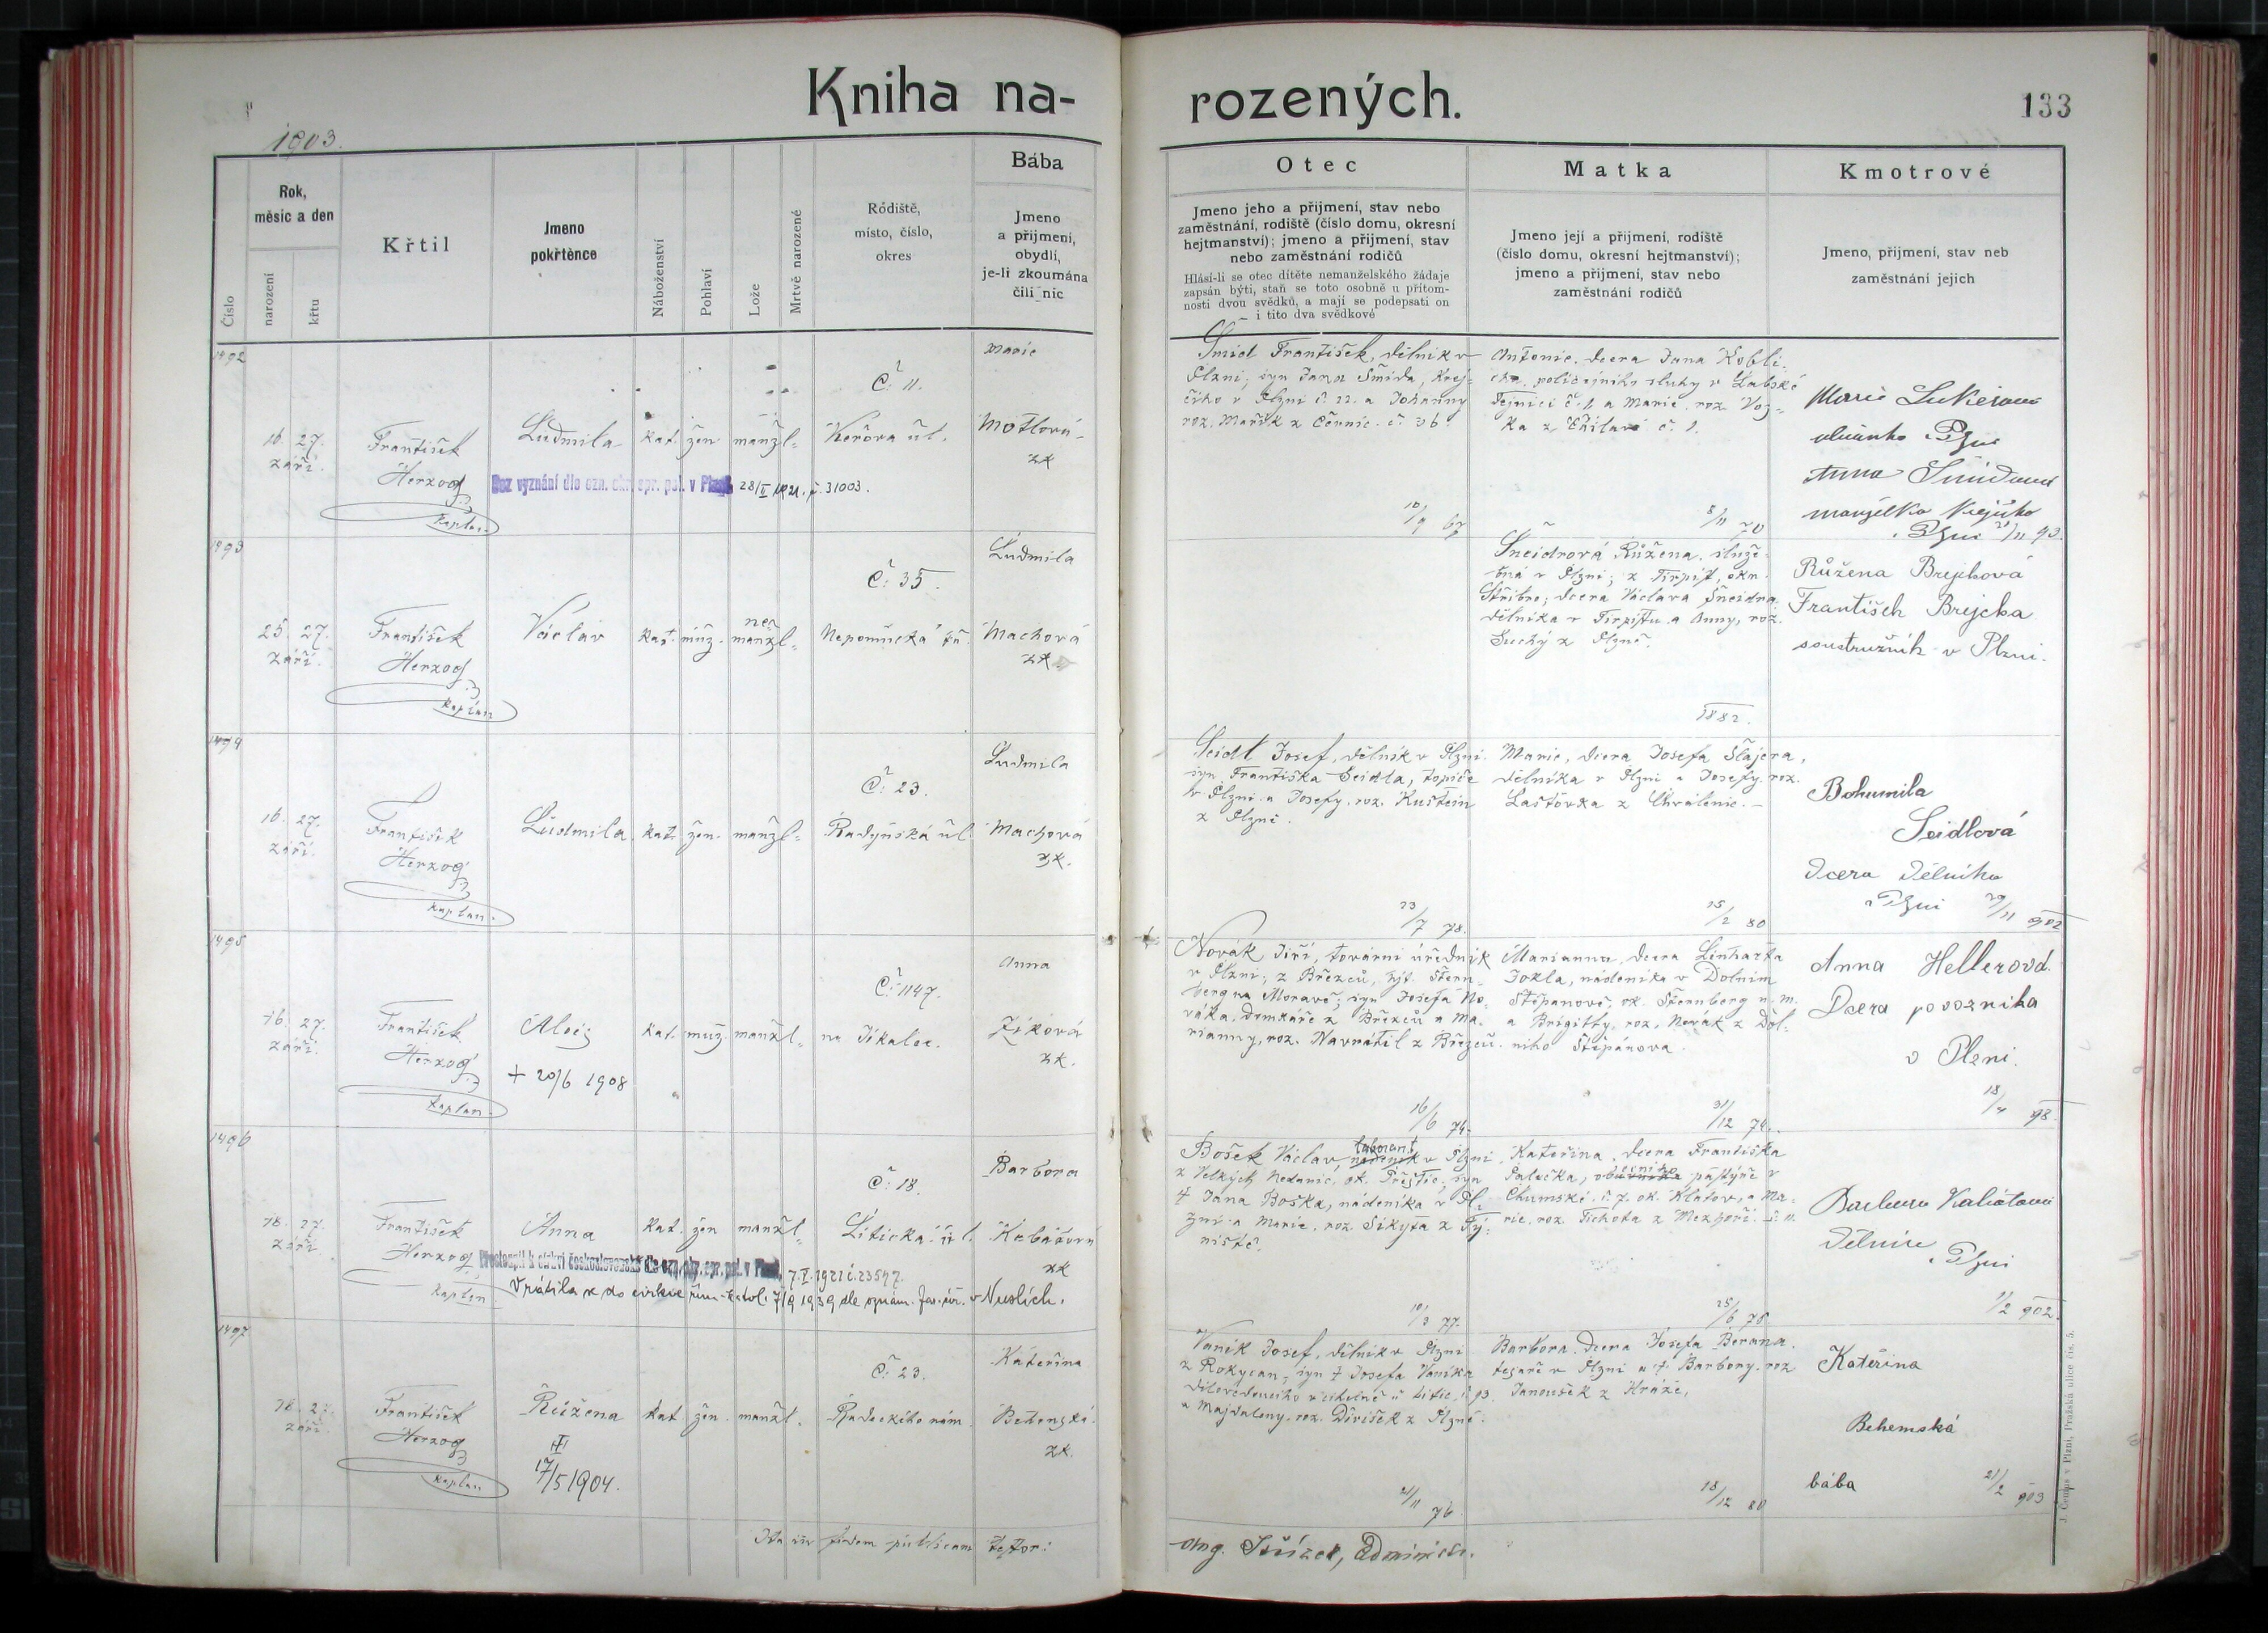 Kniha na-
rozených.
133
1903.
Číslo
Rok,
měsíc a den
narození
křtu
Křtil
Jmeno
pokřtěnce
Náboženství
Pohlaví
Lože
Mrtvě narozené
Ródiště,
místo, číslo,
okres
Bába
Jmeno
a přijmení,
obydlí,
je-li zkoumána
čili nic
Otec
Jmeno jeho a přijmení, stav nebo
zaměstnání, rodiště (číslo domu, okresní
hejtmanství); jmeno a přijmení, stav
nebo zaměstnání rodičů
Hlásí-li se otec dítěte nemanželského žádaje
zapsán býti, staň se toto osobně u přítom-
nosti dvou svědků, a mají se podepsati on
i tito dva svědkové
Matka
Jmeno její a přijmení, rodiště
(číslo domu, okresní hejtmanství);
jmeno a přijmení, stav nebo
zaměstnání rodičů
Kmotrové
Jmeno, přijmení, stav neb
zaměstnání jejich
1492
16. 27.
září.
František
Herzog
kaplan
Ludmila
kat. žen manžl.
Č: 11.
Marie
Motlová
zk
Bez vyznání dle ozn. okr. spr. pol. v Plzni, 28/II 1921. č. 31003.
Šmid František, dělník v
Plzni; syn Jana Šmida, krej-
čího v Plzni č. 22. a Johanny
roz. Mařík z Černic. č. 36.
10/9 67
Antonie, dcera Jana Kobli-
policejního sluhy v
Týnici č. 1. a Marie, roz.
č. 1.
8/11 70
Marie
Plzni
Anna Šmidová
manželka krejčího
Plzni 21/11 93.
1493
25. 27.
září.
František
Herzog
kaplan
Václav
kat. muž. nemanžl.
Č: 35.
Nepomucká tř.
Ludmila
Machová
zk.
Šneidrová Růžena, služe-
bná v Plzni; z Tirpist, okr.
Stříbro; dcera Václava Šneidra
dělníka v Tirpistu a Anny, roz.
Suchý z Plzně.
1882.
Růžena Brejchová
František Brejcha
soustružník v Plzni.
1494
16. 27.
září.
František
Herzog
kaplan.
Ludmila
kat. žen. manžl.
Č: 23.
Radyňská ul.
Ludmila
Machová
zk.
Seidl Josef, dělník v Plzni.
syn Františka Seidla, topiče
v Plzni a Josefy, roz. Kuštein
z Plzně.
23/7 78.
Marie, dcera Josefa Šlajera,
dělníka v Plzni a Josefy, roz.
Laštovka z Chválenic.
15/2 80
Bohumila
Seidlová
dcera dělníka
Plzni 29/11 902
1495
16. 27.
září.
František
Herzog
kaplan.
Alois
+ 20/6 1908
kat. muž. manžl.
Č: 1147.
na Jíkalce.
Anna
Zíková
zk.
Novák Jiří, tovární úředník
v Plzni; z Březců, hjt. Štern-
berg na Moravě; syn Josefa No-
váka, domkáře z Březců a Ma-
rianny, roz. Navrátil z Březců.
16/6 74.
Marianna, dcera Linharta
Jokla, nádeníka v Dolním
Štěpanově, ok. Šternberg n. m.
a Brigitty, roz. Novák z Dol-
ního Štěpánova.
31/12 74.
Anna Hellerová.
Dcera povozníka
v Plzni.
18/4 98.
1496
18. 27.
září
František
Herzog
kaplan
Anna
kat. žen manžl.
Č: 18.
Litická ul.
Barbora
Kabátová
zk
Přestoupil k církvi československé dle ozn. okr. spr. pol. v Plzni, 7.I.1921 č. 23547.
Vrátila se do církve řím-katol. 7/9 1939 dle oznám. far. úř. v Nuslích.
Bošek Václav, laborant nádeník v Plzni
z Velkých Nedanic, ok. Přeštic, syn
† Jana Boška, nádeníka v Pl-
zni a Marie, roz. Sikyta z Tý-
niště.
10/3 77.
Kateřina, dcera Františka
Palečka, obecního pastýře v
Chumské. č. 7. ok. Klatov, a Ma-
rie, roz. Tichota z Mezhoří. č. 11.
25/6 78
Barbora Kabátová
Dělnice
v Plzni
1/2 902.
1497
18. 27.
září.
František
Herzog
kaplan
Růžena
17/5 1904.
kat. žen. manžl.
Č: 23.
Radeckého nám.
Kateřina
Behemská.
zk.
Vaník Josef, dělník v Plzni
z Rokycan, syn † Josefa Vaníka
dílovedoucího v cihelně u Litic, č. 93.
a Majdaleny, roz. Divišek z Plzně.
21/11 76.
Barbora, dcera Josefa Berana,
tesaře v Plzni a †. Barbory, roz
Janoušek z Hráze,
18/12 80
Kateřina
Behemská
bába 21/2 903
Ita in fidem publicam testor:
Aug. Jiřízek, administr.
J. Čeněk v Plzni, Pražská ulice čís. 5.